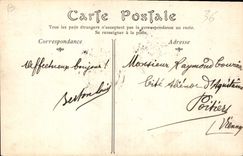 36
Carte Postale
Tous les pays étrangers n'acceptent pas la correspondance au recto.
Se renseigner à la poste.
Correspondance
Adresse
Affectueux bonjour !
Monsieur Raymond
Cité d'Aquitaine
Poitiers
(Vienne)